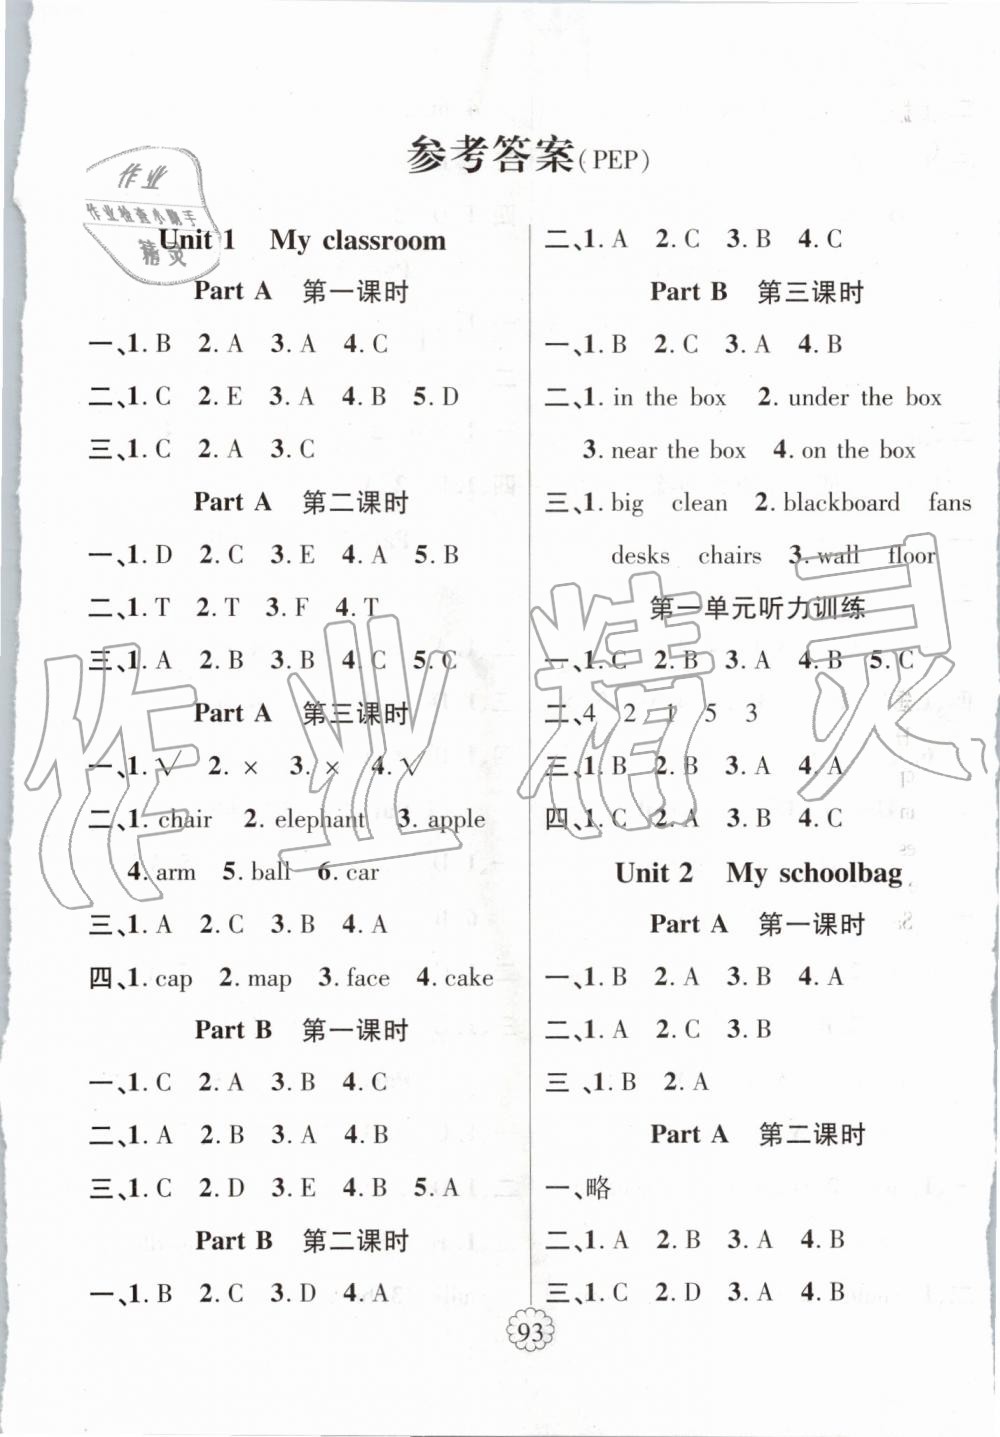 参考答案(PEP)
作业
作业检查小助手
精灵
Unit 1 My classroom
Part A 第一课时
一、1. B 2. A 3. A 4. C
二、1. C 2. E 3. A 4. B 5. D
三、1. C 2. A 3. C
Part A 第二课时
一、1. D 2. C 3. E 4. A 5. B
二、1. T 2. T 3. F 4. T
三、1. A 2. B 3. B 4. C 5. C
Part A 第三课时
一、1. √ 2. × 3. × 4. √
二、1. chair 2. elephant 3. apple
4. arm 5. ball 6. car
三、1. A 2. C 3. B 4. A
四、1. cap 2. map 3. face 4. cake
Part B 第一课时
一、1. C 2. A 3. B 4. C
二、1. A 2. B 3. A 4. B
三、1. C 2. D 3. E 4. B 5. A
Part B 第二课时
一、1. B 2. C 3. D 4. A
二、1. A 2. C 3. B 4. C
Part B 第三课时
一、1. B 2. C 3. A 4. B
二、1. in the box 2. under the box
3. near the box 4. on the box
三、1. big clean 2. blackboard fans
desks chairs 3. wall floor
第一单元听力训练
一、1. C 2. B 3. A 4. B 5. C
二、4 2 1 5 3
三、1. B 2. B 3. A 4. A
四、1. C 2. A 3. B 4. C
Unit 2 My schoolbag
Part A 第一课时
一、1. B 2. A 3. B 4. A
二、1. A 2. C 3. B
三、1. B 2. A
Part A 第二课时
一、略
二、1. A 2. B 3. A 4. B
三、1. C 2. D 3. A 4. B
93
作业精灵